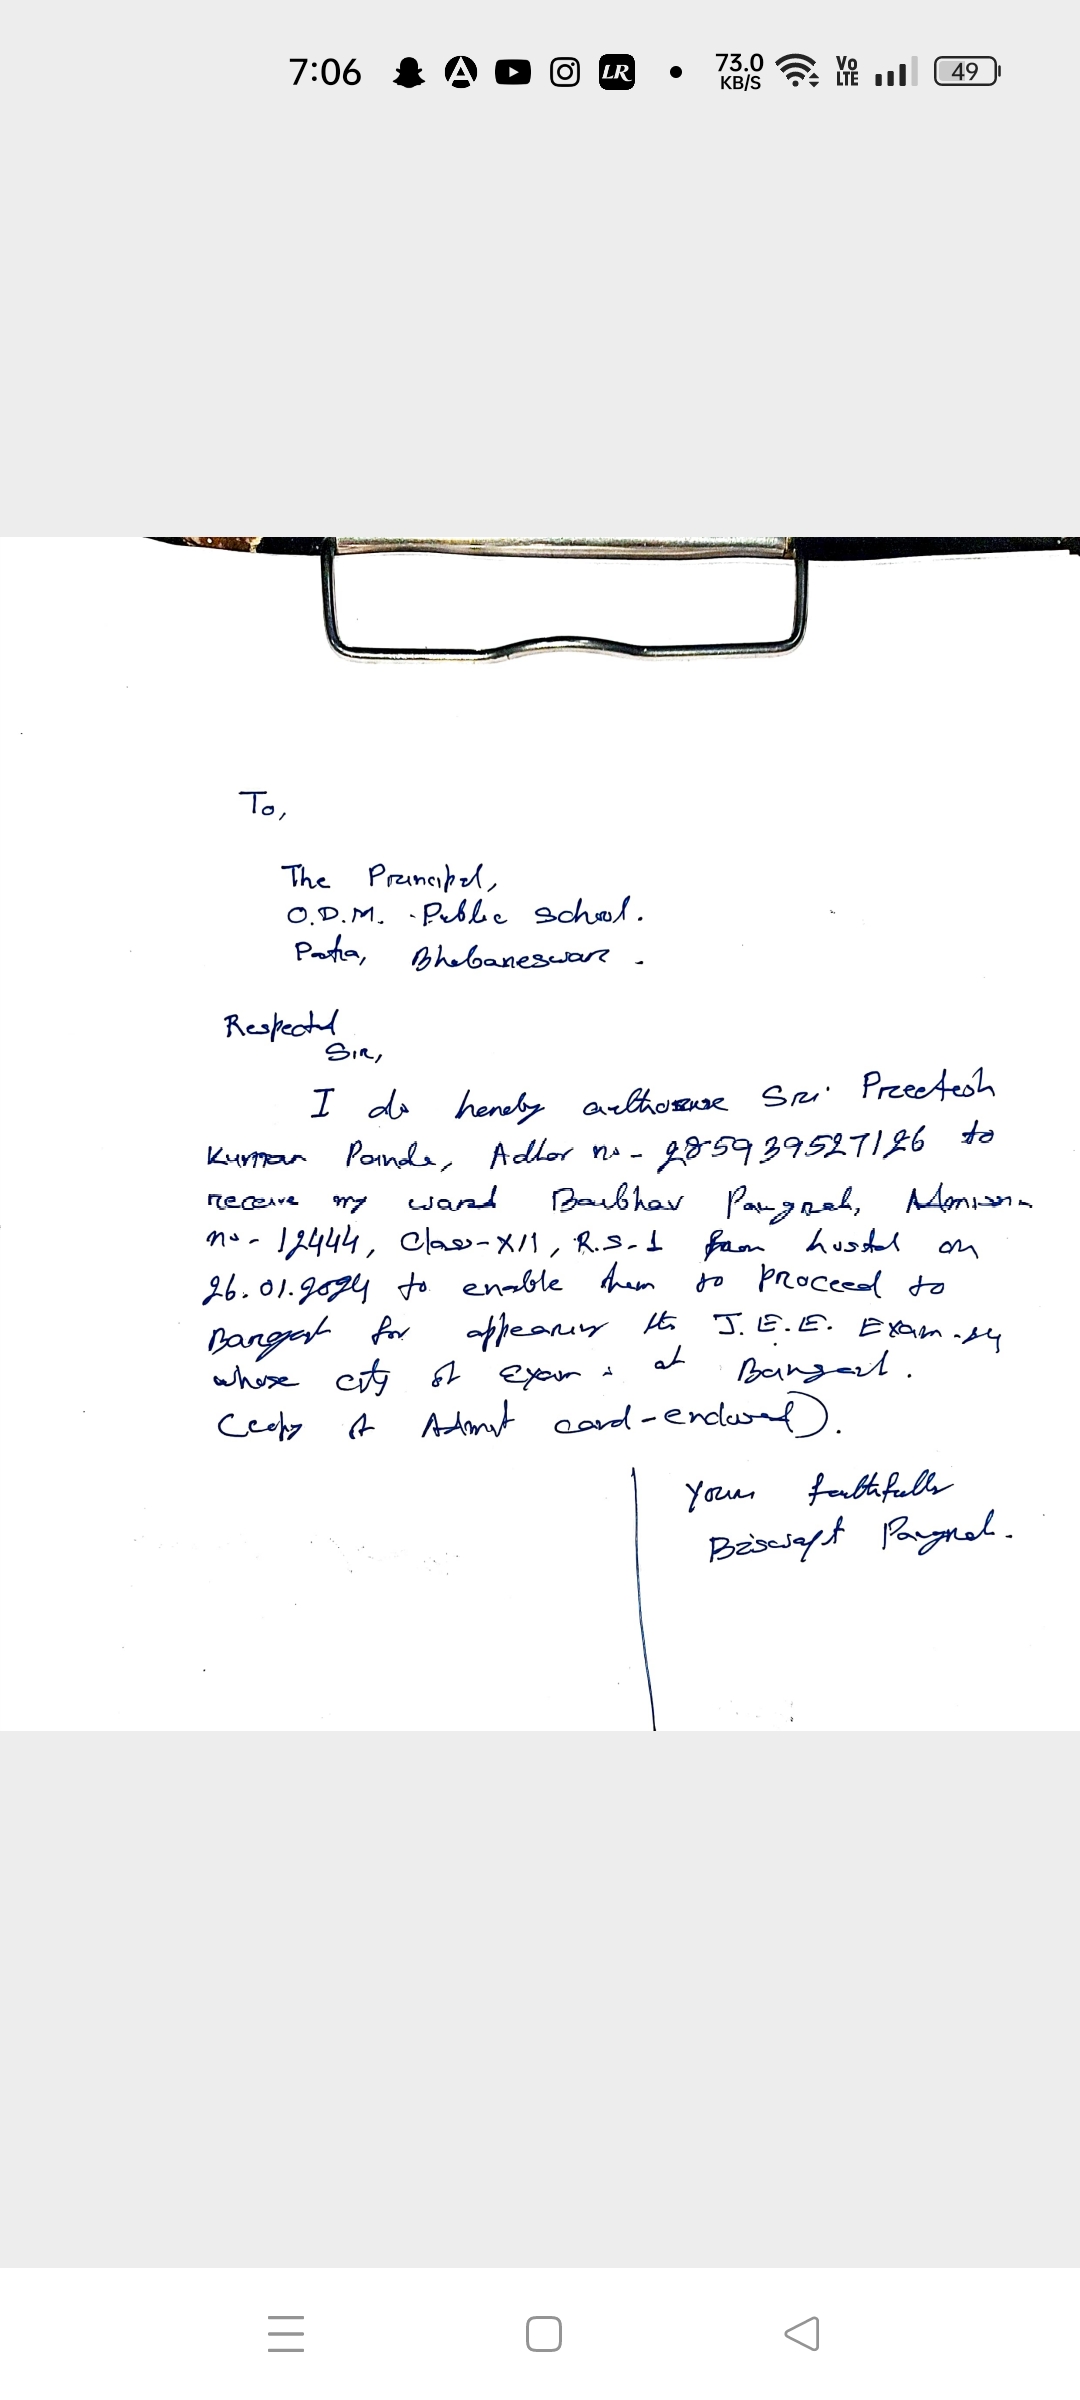 7:06 LR 73.0 KB/S Vo LTE 49
To,
The Principal,
O.D.M. Public School.
Patia, Bhubaneswar.
Respected
Sir,
I do hereby authorise Sri Preetesh
Kumar Panda, Adhar no - 285939527126 to
receive my ward Baibhav Panigrahi, Admission
no - 12444, Class-XII, R.S-1 from hostel on
26.01.2024 to enable them to proceed to
for appearing the J.E.E. Exam-24
whose city of exam is at
(Copy of Admit card-enclosed).
Yours faithfully
Panigrahi.